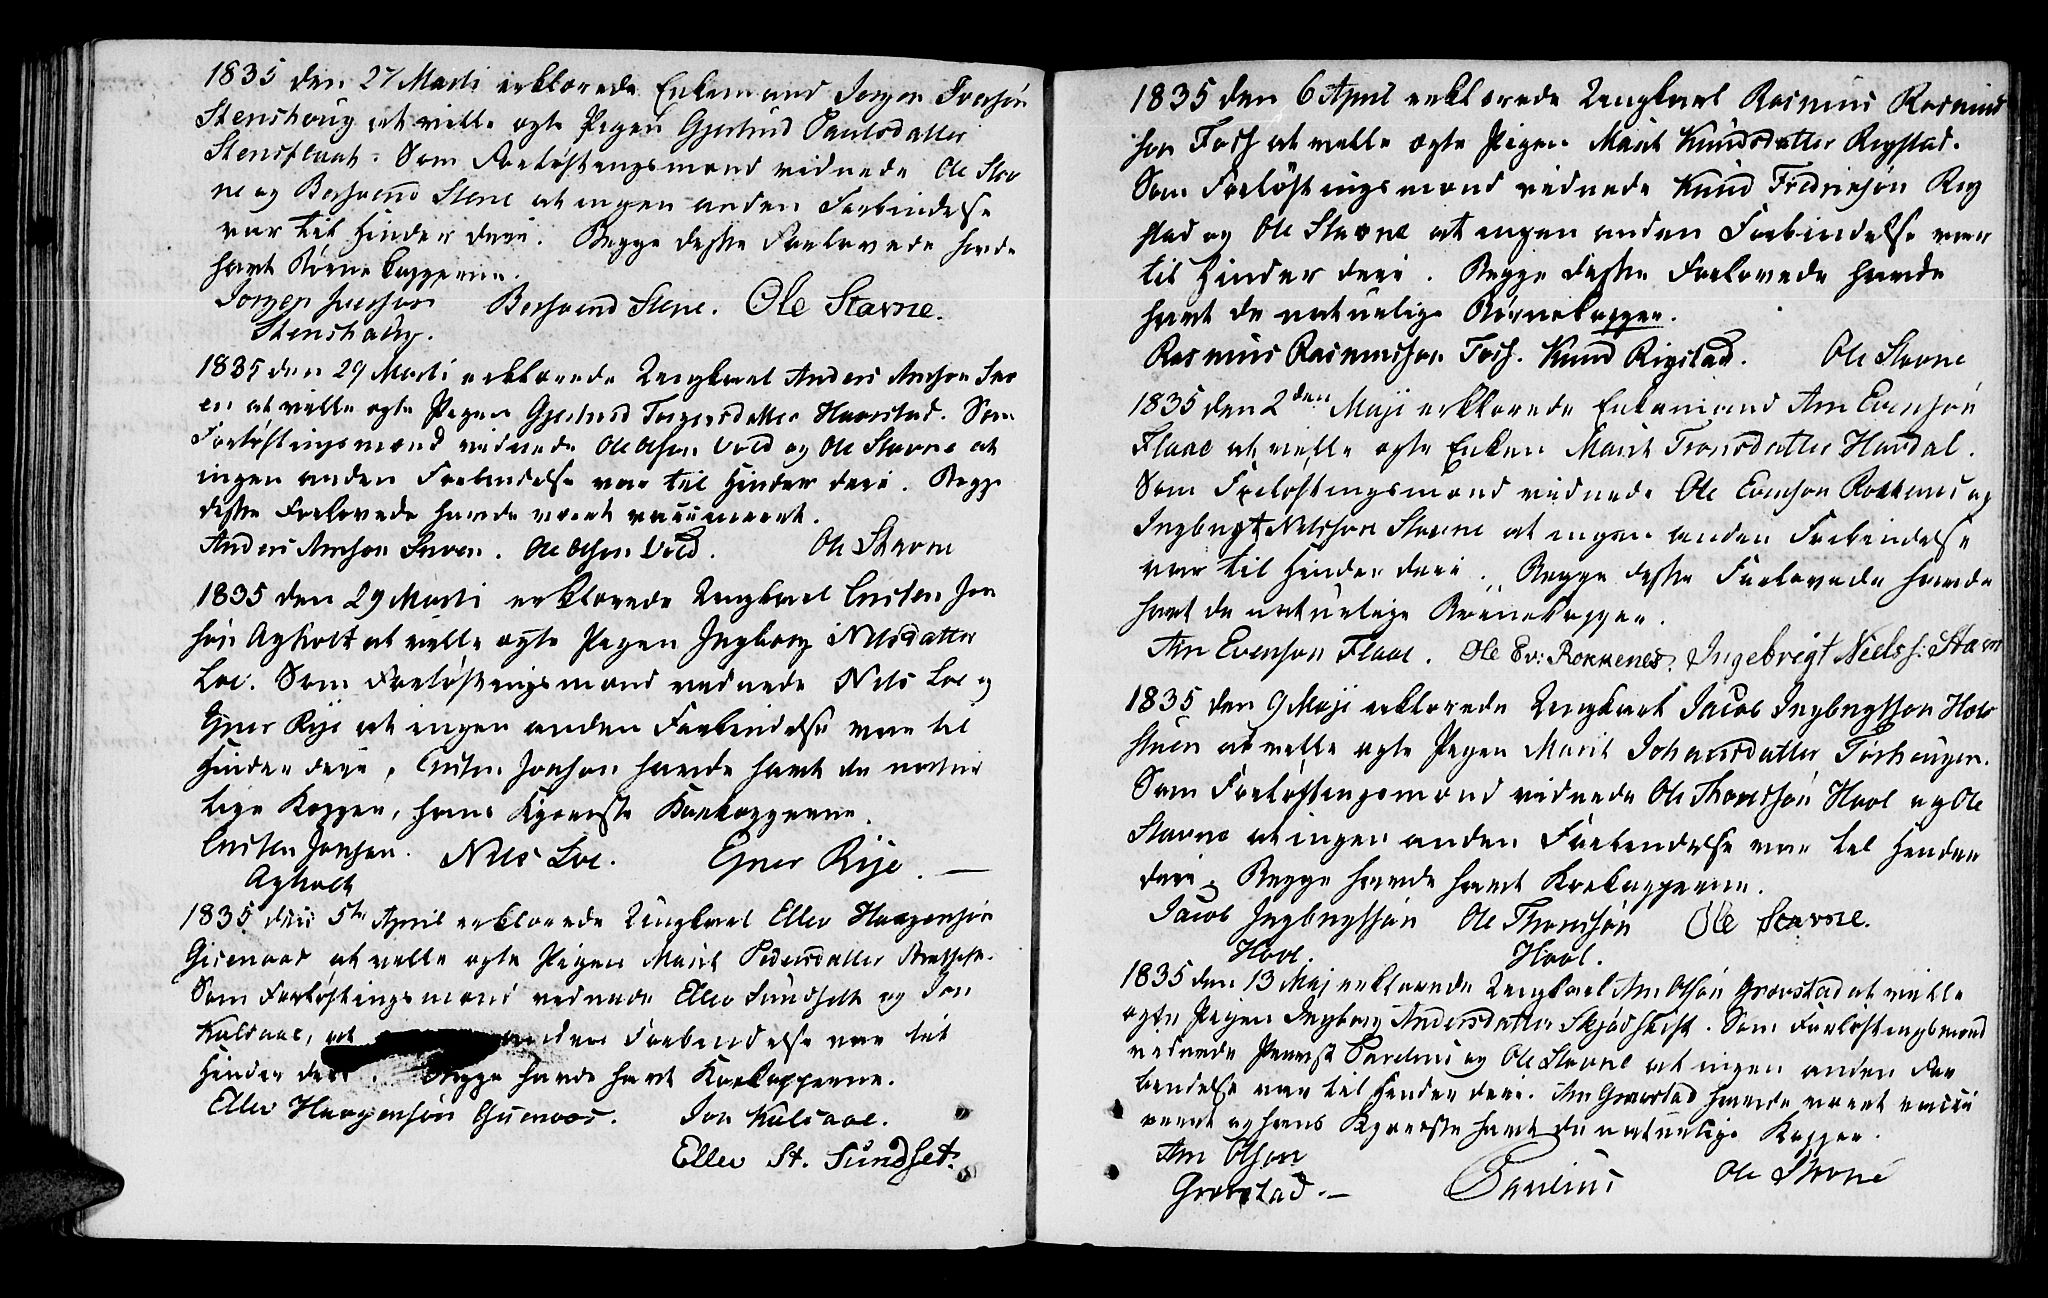 1835 den 27 Marti erklærede Enkemand Jørgen Iversøn
Stenshoug at ville ægte Pigen Gjertrud Paulsdatter
Stensflaat. Som Forløftningsmænd vidnede Ole Stav
ne og Bersvend Stene at ingen anden Forbindelse
var til Hinder deri. Begge disse Forlovede havde
havt Børnekopperne.
Jørgen Iverson Bersvend Stene. Ole Stavne.
Stenshaug.
1835 den 29 Marti erklærede Ungkarl Anders Arnson
en at ville ægte Pigen Gjertrud Torgersdatter Haarstad. Som
Forløftningsmænd vidnede Ole Olsen Vold og Ole Stavne at
ingen anden Forbindelse var til Hinder deri. Begge
disse Forlovede havde været vaccineret.
Anders Arnson. Ole Olsen Vold. Ole Stavne
1835 den 29 Marti erklærede Ungkarl Cristen Jon
søn Agholt at ville ægte Pigen Ingborg Nilsdatter
Loe. Som Forløftningsmænd vidnede Nils Loe og
Ejner Rije at ingen anden Forbindelse var til
Hinder deri, Cristen Jonson havde havt de natur
lige Kopper, hans Kjæreste Kokopperne.
Cristen Jonson. Nils Loe. Ejner Rije. —
Agholt
1835 den 5te April erklærede Ungkarl Ellev Haagensøn
Gisenaas at ville ægte Pigen Marit Pedersdatter
Som Forløftningsmænd vidnede Ellev Sundset og Jon
Kulsaae, at anden Forbindelse var til
Hinder deri. Begge havde havt Kokopperne.
Ellev Haagensøn Gisenaas. Jon Kulsaae.
Ellev St. Sundset.
1835 den 6 April erklærede Ungkarl Rasmus Rasmus
son Foss at ville ægte Pigen Marit Knudsdatter Rigstad.
Som Forløftningsmænd vidnede Knud Fredriksøn Rig
stad og Ole Stavne at ingen anden Forbindelse var
til Hinder deri. Begge disse Forlovede havde
havt de naturlige Børnekopper.
Rasmus Rasmusson Foss. Knud Rigstad. Ole Stavne
1835 den 2den Maji erklærede Enkemand Arn Evensøn
Flaae at ville ægte Enken Marit Tronsdatter Havdal.
Som Forløftningsmænd vidnede Ole Evenson Rokkenes og
Ingbrigt Nilsson Stavne at ingen anden Forbindelse
var til Hinder deri. Begge disse Forlovede havde
havt de naturlige Børnekopper.
Arn Evenson Flaae. Ole Ev: Rokkenes. Ingebrigt Niels s: Stavn
1835 den 9 Maji erklærede Ungkarl Jacob Ingbrigtson Hovs
stuen at ville ægte Pigen Marit Johansdatter Forhougen.
Som Forløftningsmænd vidnede Ole Thomsøn Hovl og Ole
Stavne at ingen anden Forbindelse var til Hinder
deri. Begge havde havt Kokopperne.
Jacob Ingbrigtsøn Ole Thomsøn Ole Stavne.
Hovl. Hovl.
1835 den 13 Maj erklærede Ungkarl Arn Olsøn Gravstad at ville
ægte Pigen Ingborg Andersdatter Skjødskift. Som Forløftningsmænd
vidnede Parelius og Ole Stavne at ingen anden For
bindelse var til Hinder deri. Arn Gravstad havde været vacci
neret og hans Kjæreste havt de naturlige Kopper.
Arn Olson
Gravstad. — Parelius Ole Stavne